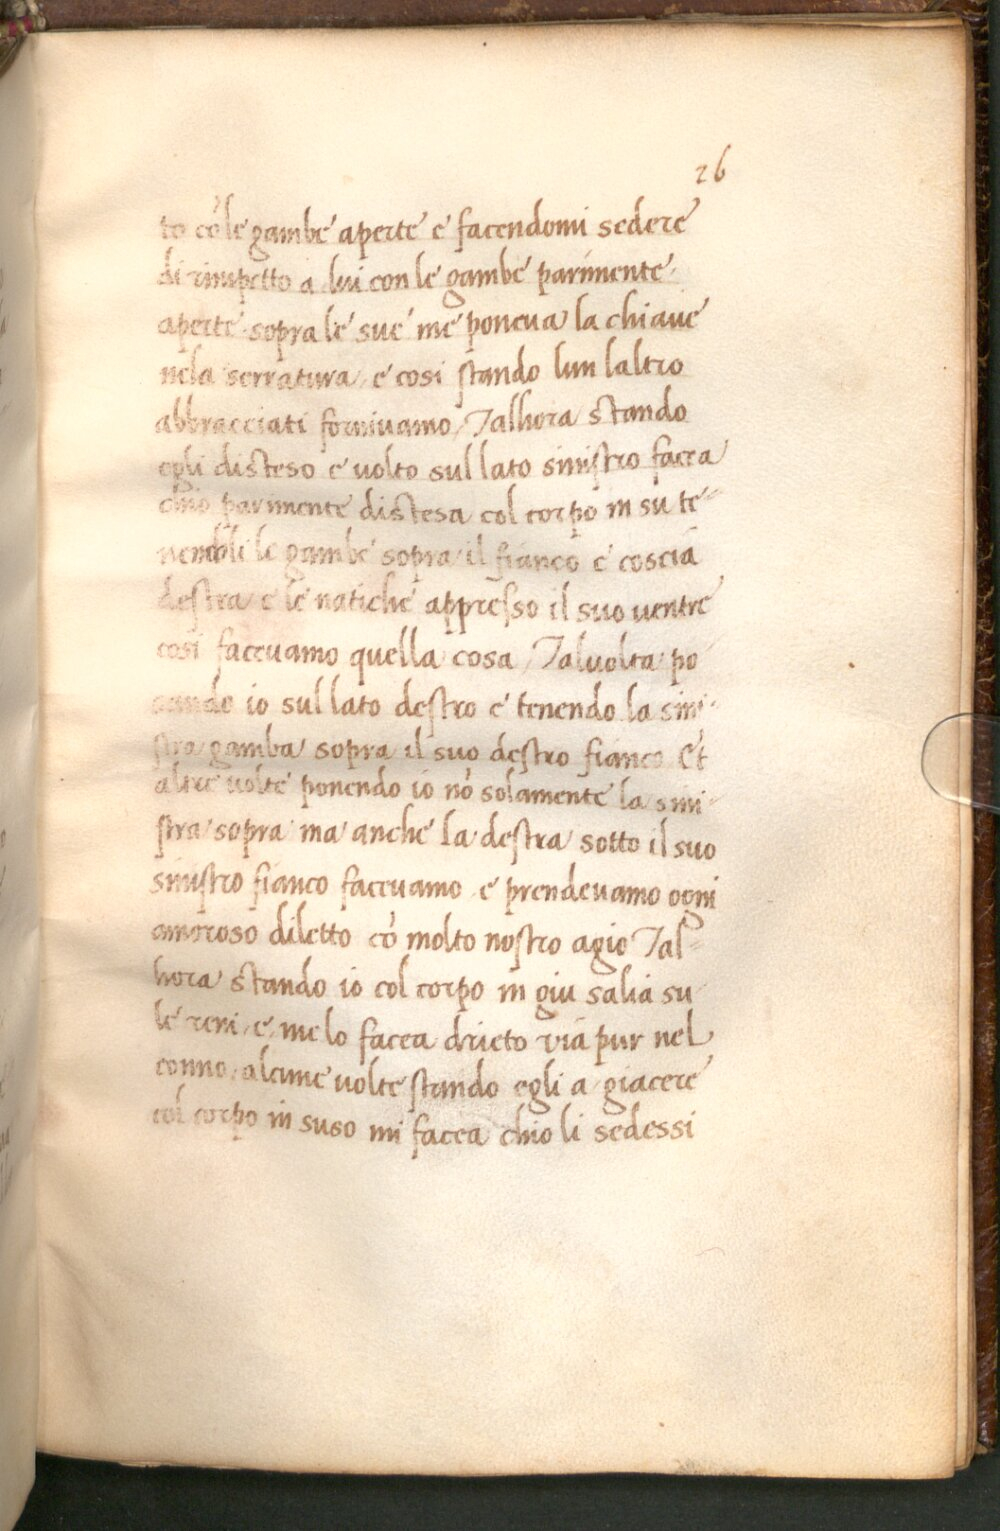 26
to cō le gambe aperte e facendomi sedere
di rimpetto a lui con le gambe parimente
aperte sopra le sue me poneua la chiaue
nela serratura, e cosi stando lun laltro
abbracciati forniuamo, Talhora stando
egli disteso e uolto sul lato sinistro facea
chio parimente distesa col corpo in su te-
nendoli le gambe sopra il fianco e coscia
destra e le natiche appresso il suo uentre
cosi faceuamo quella cosa, Taluolta po
nando io sul lato destro e tenendo la sini-
stra gamba sopra il suo destro fianco Et
altre uolte ponendo io nō solamente la sini-
stra sopra ma anche la destra sotto il suo
sinistro fianco faceuamo e prendeuamo ogni
amoroso diletto cō molto nostro agio Tal-
hora stando io col corpo in giu salia su
le reni, e, me lo facea drieto via pur nel
conno, alcune uolte stando egli a giacere
col corpo in suso mi facea chio li sedessi